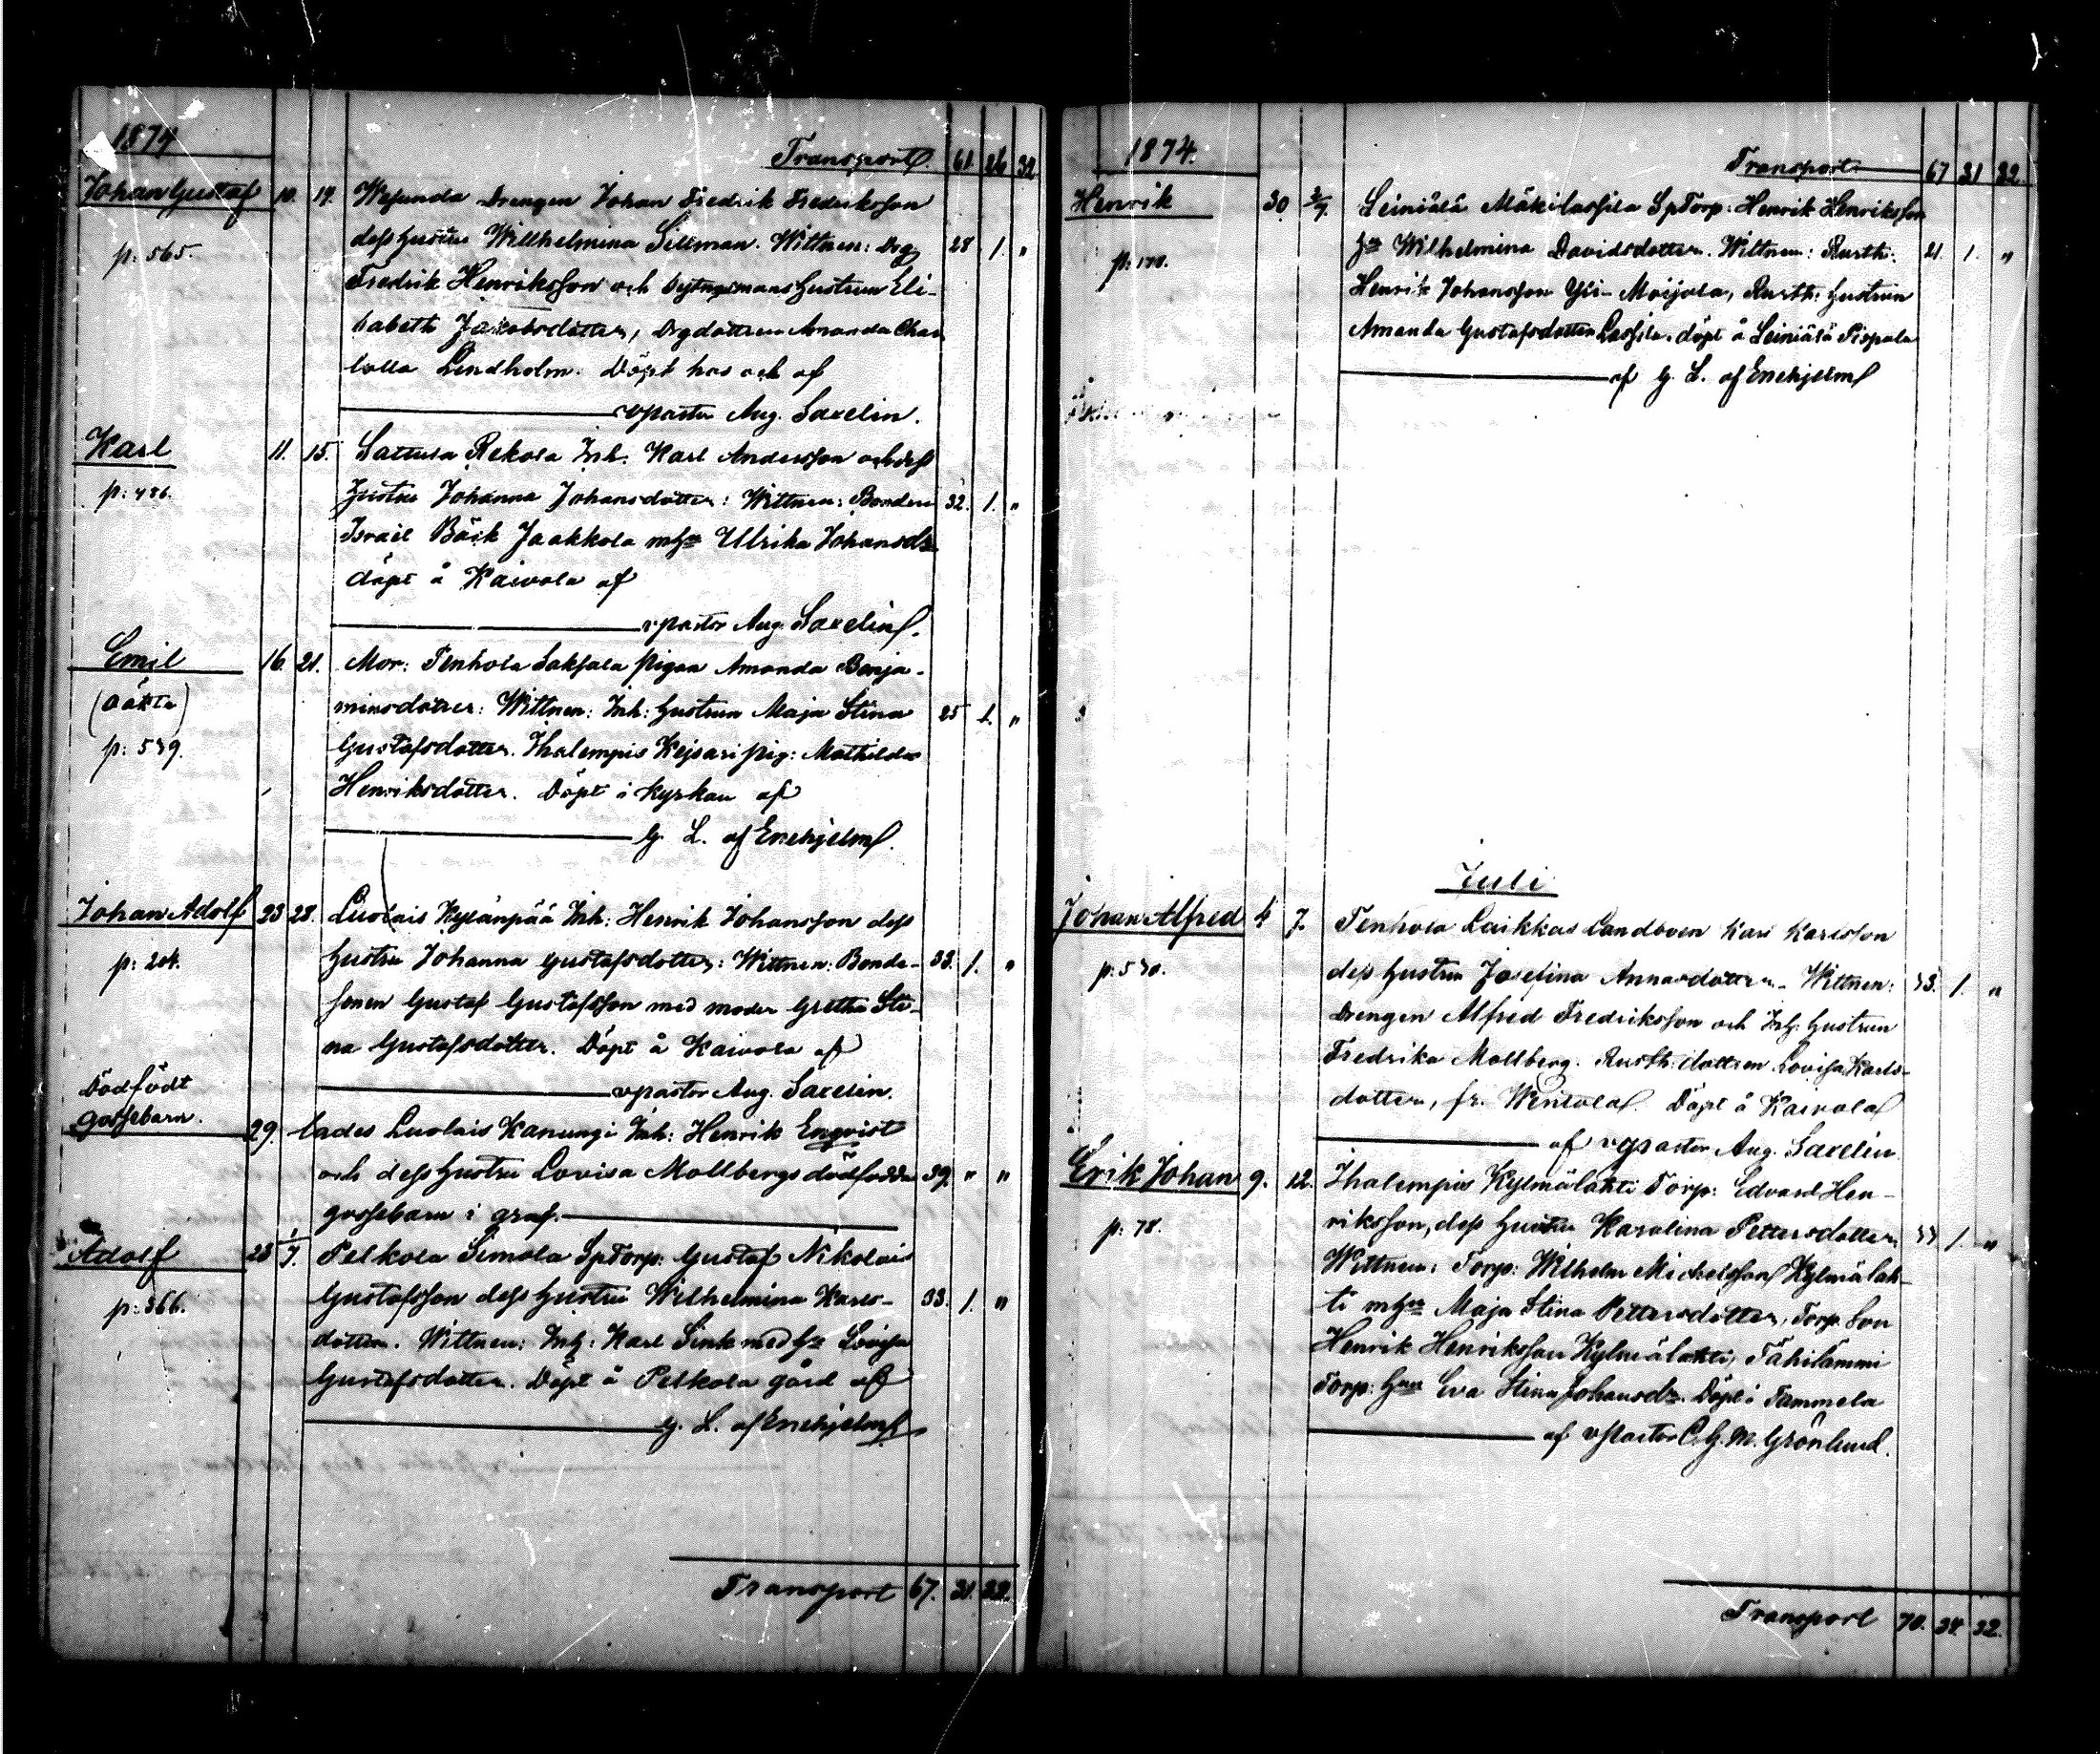 1874
Transport. 61 26 32
Johan Gustaf 10. 14. Wesunda Drengen Johan Fredrik Fredriksson
dess hustru Willhelmina Sillman. Wittnen: Drg 28 1. "
p: 565.
Fredrik Henriksson och hustrun Eli-
sabeth Jakobsdotter, Drgdottren Amanda Char
lotta Lindholm. Döpt hos och af
vpastor Aug. Saxelin.
Karl 11. 15. Sattula Rekola Inh. Karl Andersson och dess
p: 486. hustru Johanna Johansdotter: Wittnen: Bonden 32. 1. "
Israil Bäck Jaakkola mhu Ulrika Johansdr
döpt å Kaivola af
vpastor Aug. Saxelin.
Emil 16. 21. Mor: Tenhola Saksala pigan Amanda Benja-
(oäkta) minsdotter: Wittnen: Inh: hustrun Maja Stina 25 1. "
p: 539. Gustafsdotter. Ihalempis Kejsari pig: Mathilda
Henriksdotter. Döpt i kyrkan af
G. L. af Enehjelm.
Johan Adolf 23 28. Luolais Kylänpää Inh: Henrik Johansson dess
p: 204. hustru Johanna Gustafsdotter: Wittnen: Bonde- 33. 1. "
sonen Gustaf Gustafsson med moder Gretha Sti-
na Gustafsdotter. Döpt å Kaivola af
vpastor Aug. Saxelin.
Dödfödt
gossebarn. 29. lades Luolais Kanungi Inh: Henrik Enqvist
och dess hustru Lovisa Mollbergs dödfödda 39. " "
gossebarn i graf.
Adolf 28 1/7. Pelkola Simola SpTorp: Gustaf Nikolai
p: 366. Gustafsson dess hustru Wilhelmina Karls- 33. 1. "
dotter. Wittnen: Inh: Karl Sink med hu Lovisa
Gustafsdotter. Döpt å Pelkola gård af
G. L. af Enehjelm.
Transport 67. 31. 32.
1874.
Transport 67 31 32.
Henrik 30 2/7. Leiniälä Mäkilassila SpTorp: Henrik Henriksson
hu Wilhelmina Davidsdotter. Wittnen: Rusth: 21. 1. "
Henrik Johansson Yli-Maijala, Rusth: hustrun
Amanda Gustafsdotter Lassila. döpt å Leiniälä Pispala
af G. L. af Enehjelm
Juli
Johan Alfred 4 7. Tenhola Luikkas Landboen Karl Karlsson
p: 530. dess hustru Josefina Annasdotter. Wittnen: 33. 1. "
Drengen Alfred Fredriksson och Inh: hustrun
Fredrika Mollberg. Rusth: dottren Lovisa Karls-
dotter, fr. Döpt å Kaivola
af vpastor Aug. Saxelin
Erik Johan 9. 12. Ihalempis Kylmälahti Torp: Edvard Hen-
p: 78. riksson, dess hustru Karolina Pettersdotter 33 1. "
Wittnen: Torp: Wilhelm Michelsson Kylmälah-
ti mhu Maja Stina Pettersdotter, Torp. Son
Henrik Henriksson Kylmälahti, Tähilammi
Torp: hun Eva Stina Johansdr. Döpt i Tammela
af vpastor C. G. M. Grönlund.
Transport 70. 34. 32.